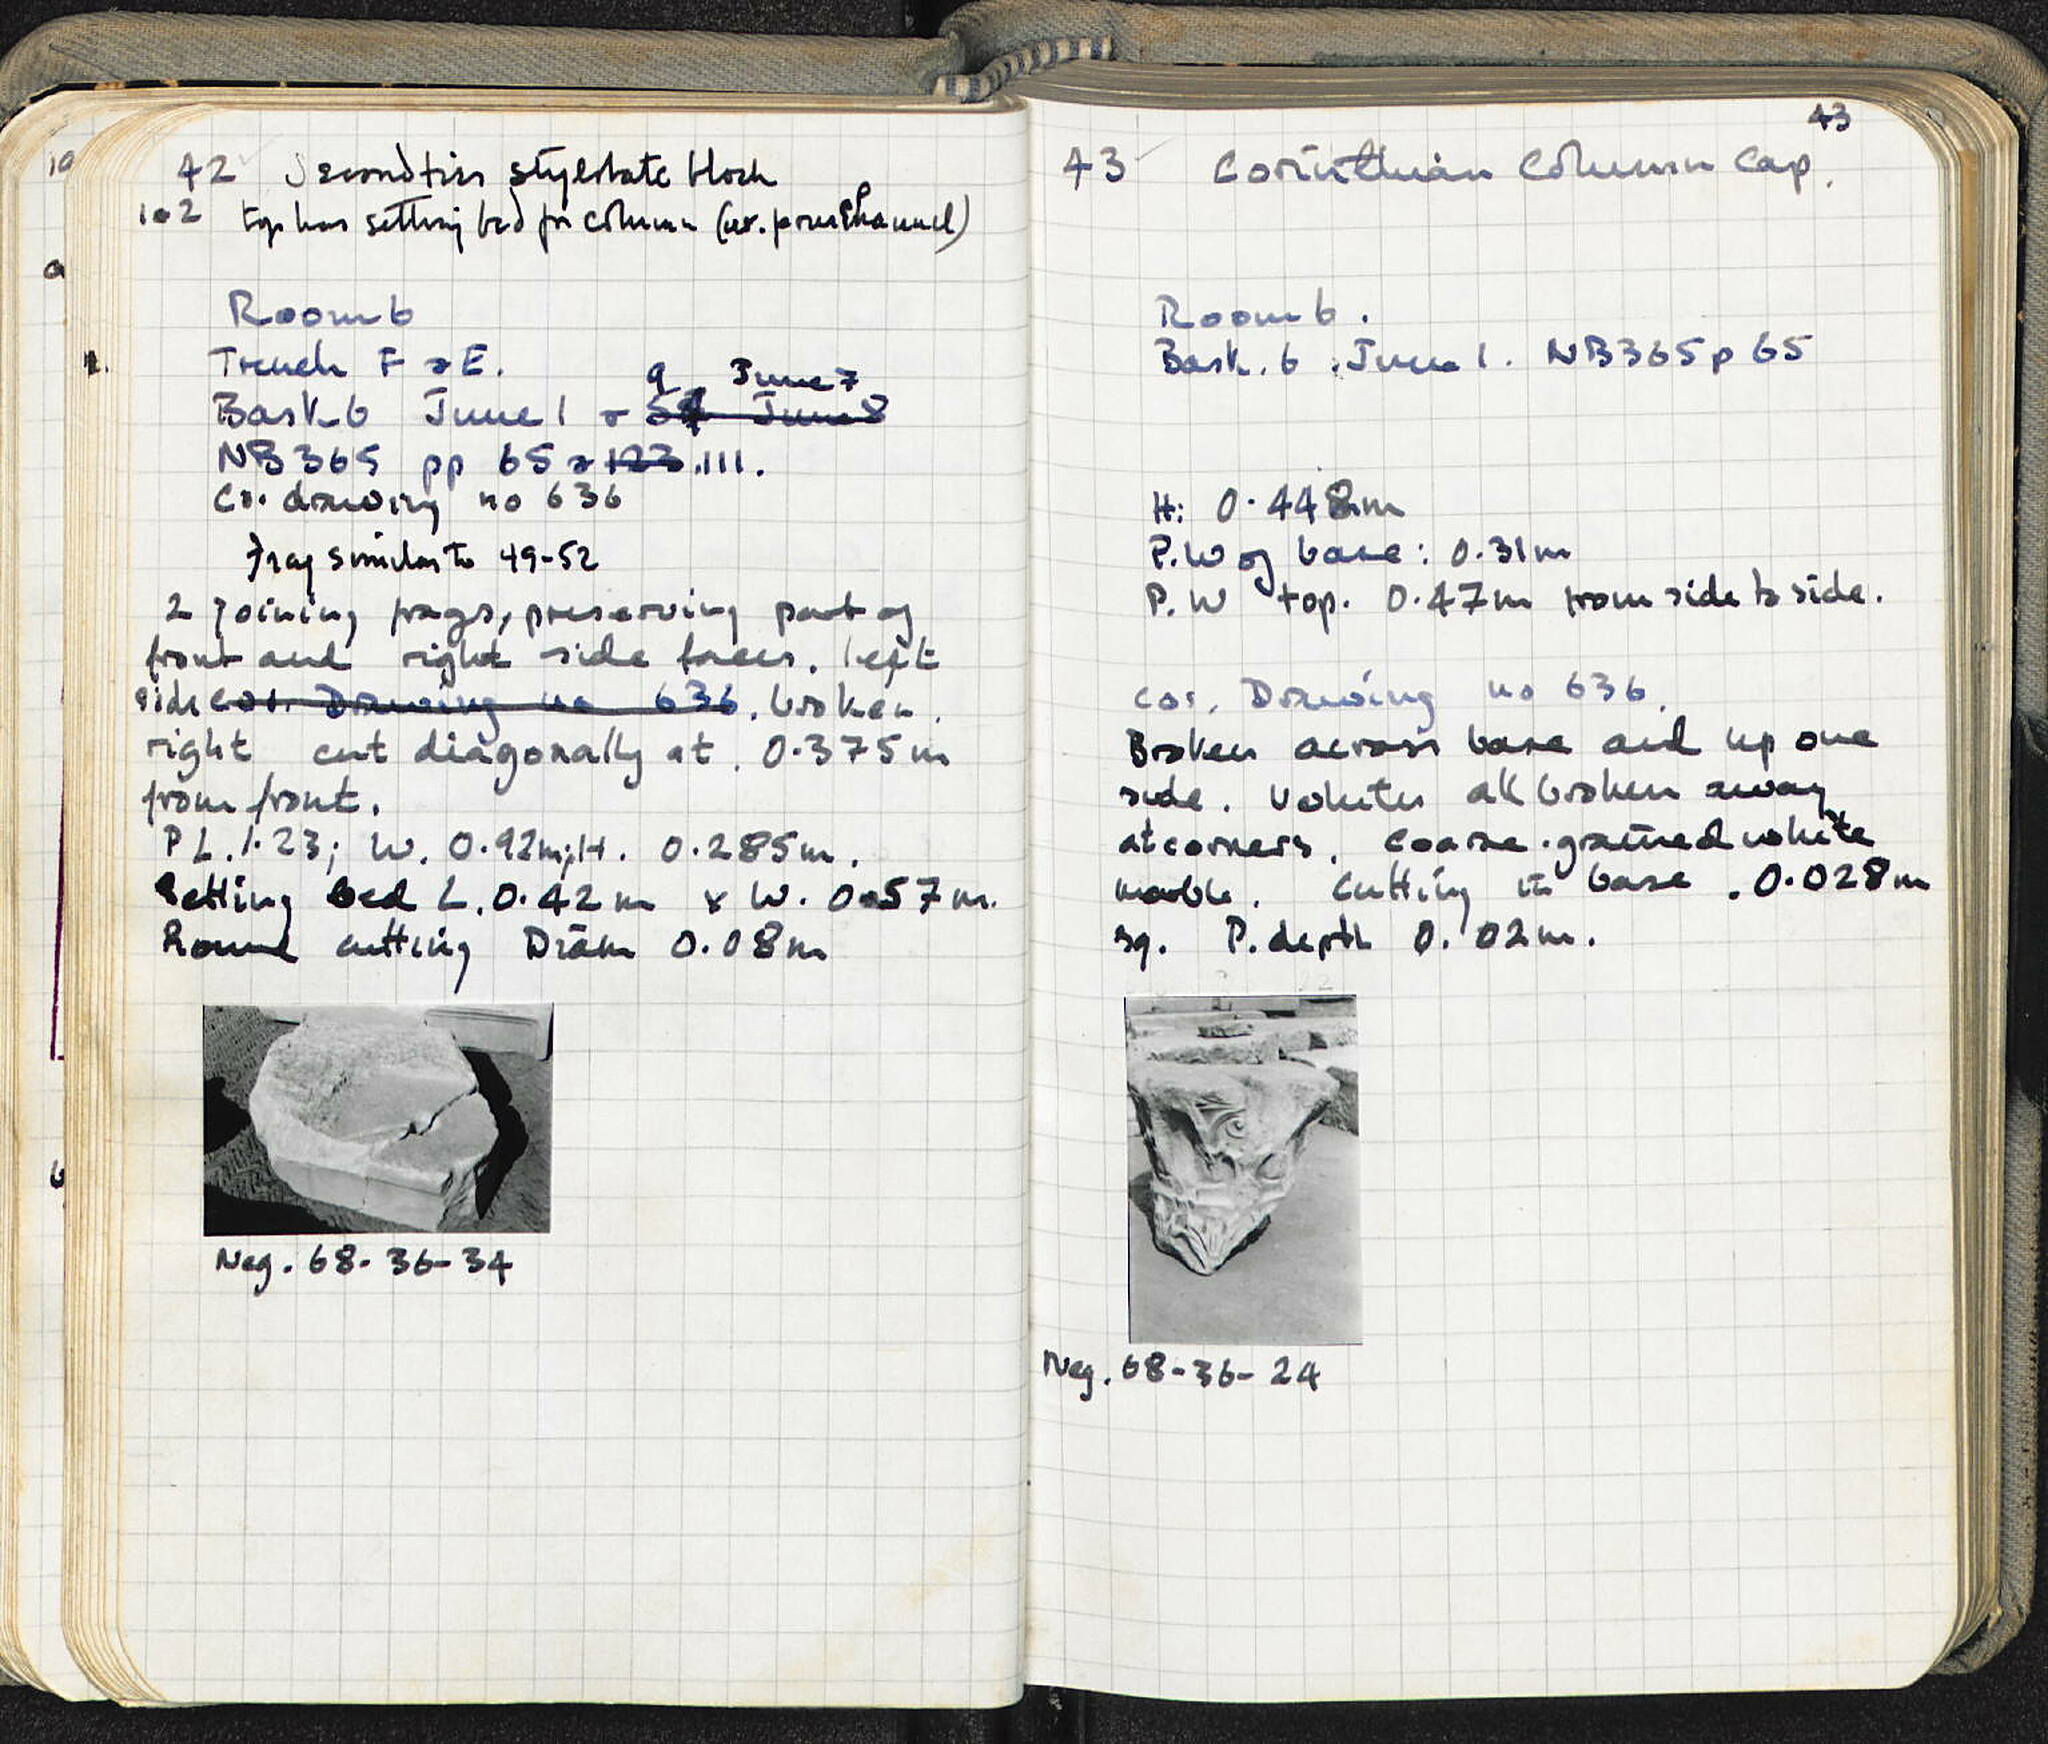 42 Second tier stylobate block
102 top has setting bed for column (w. pour channel)
Room 6
Trench F & E.
9 June 7
Bask 6 June 1 & 54 June 8
NB 365 pp 65 & 123 .111.
Co. drawing no 636
Frag similar to 49-52
2 joining frags, preserving part of
front and right side faces. left
side Cor. Drawing no 636. broken.
right cut diagonally at . 0.375m
from front.
P L. 1.23; W. 0.92m; H. 0.285m.
Setting bed L. 0.42m x W. 0.57m.
Round cutting Diam 0.08m
Neg. 68-36-34
43
43 Corinthian Column Cap.
Room 6.
Bask. 6 . June 1. NB365 p 65
H: 0.448m
P.W of base: 0.31m
P.W top. 0.47m from side to side.
Cor. Drawing no 636.
Broken across base and up one
side. Volutes all broken away
at corners. Coarse-grained white
marble. Cutting in base . 0.028m
sq. P. depth 0.02m.
Neg. 68-36-24